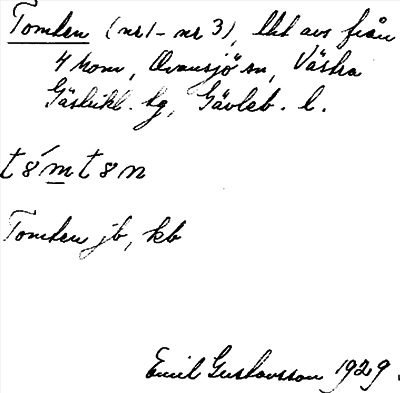 Tomten (nr 1 - nr 3), lht avs från
4 hom, Ovansjö sn, Västra
Gästrikl. tg, Gävleb. l.
t8́mt8n
Tomten jb, kb
Emil Gustavsson 1929.